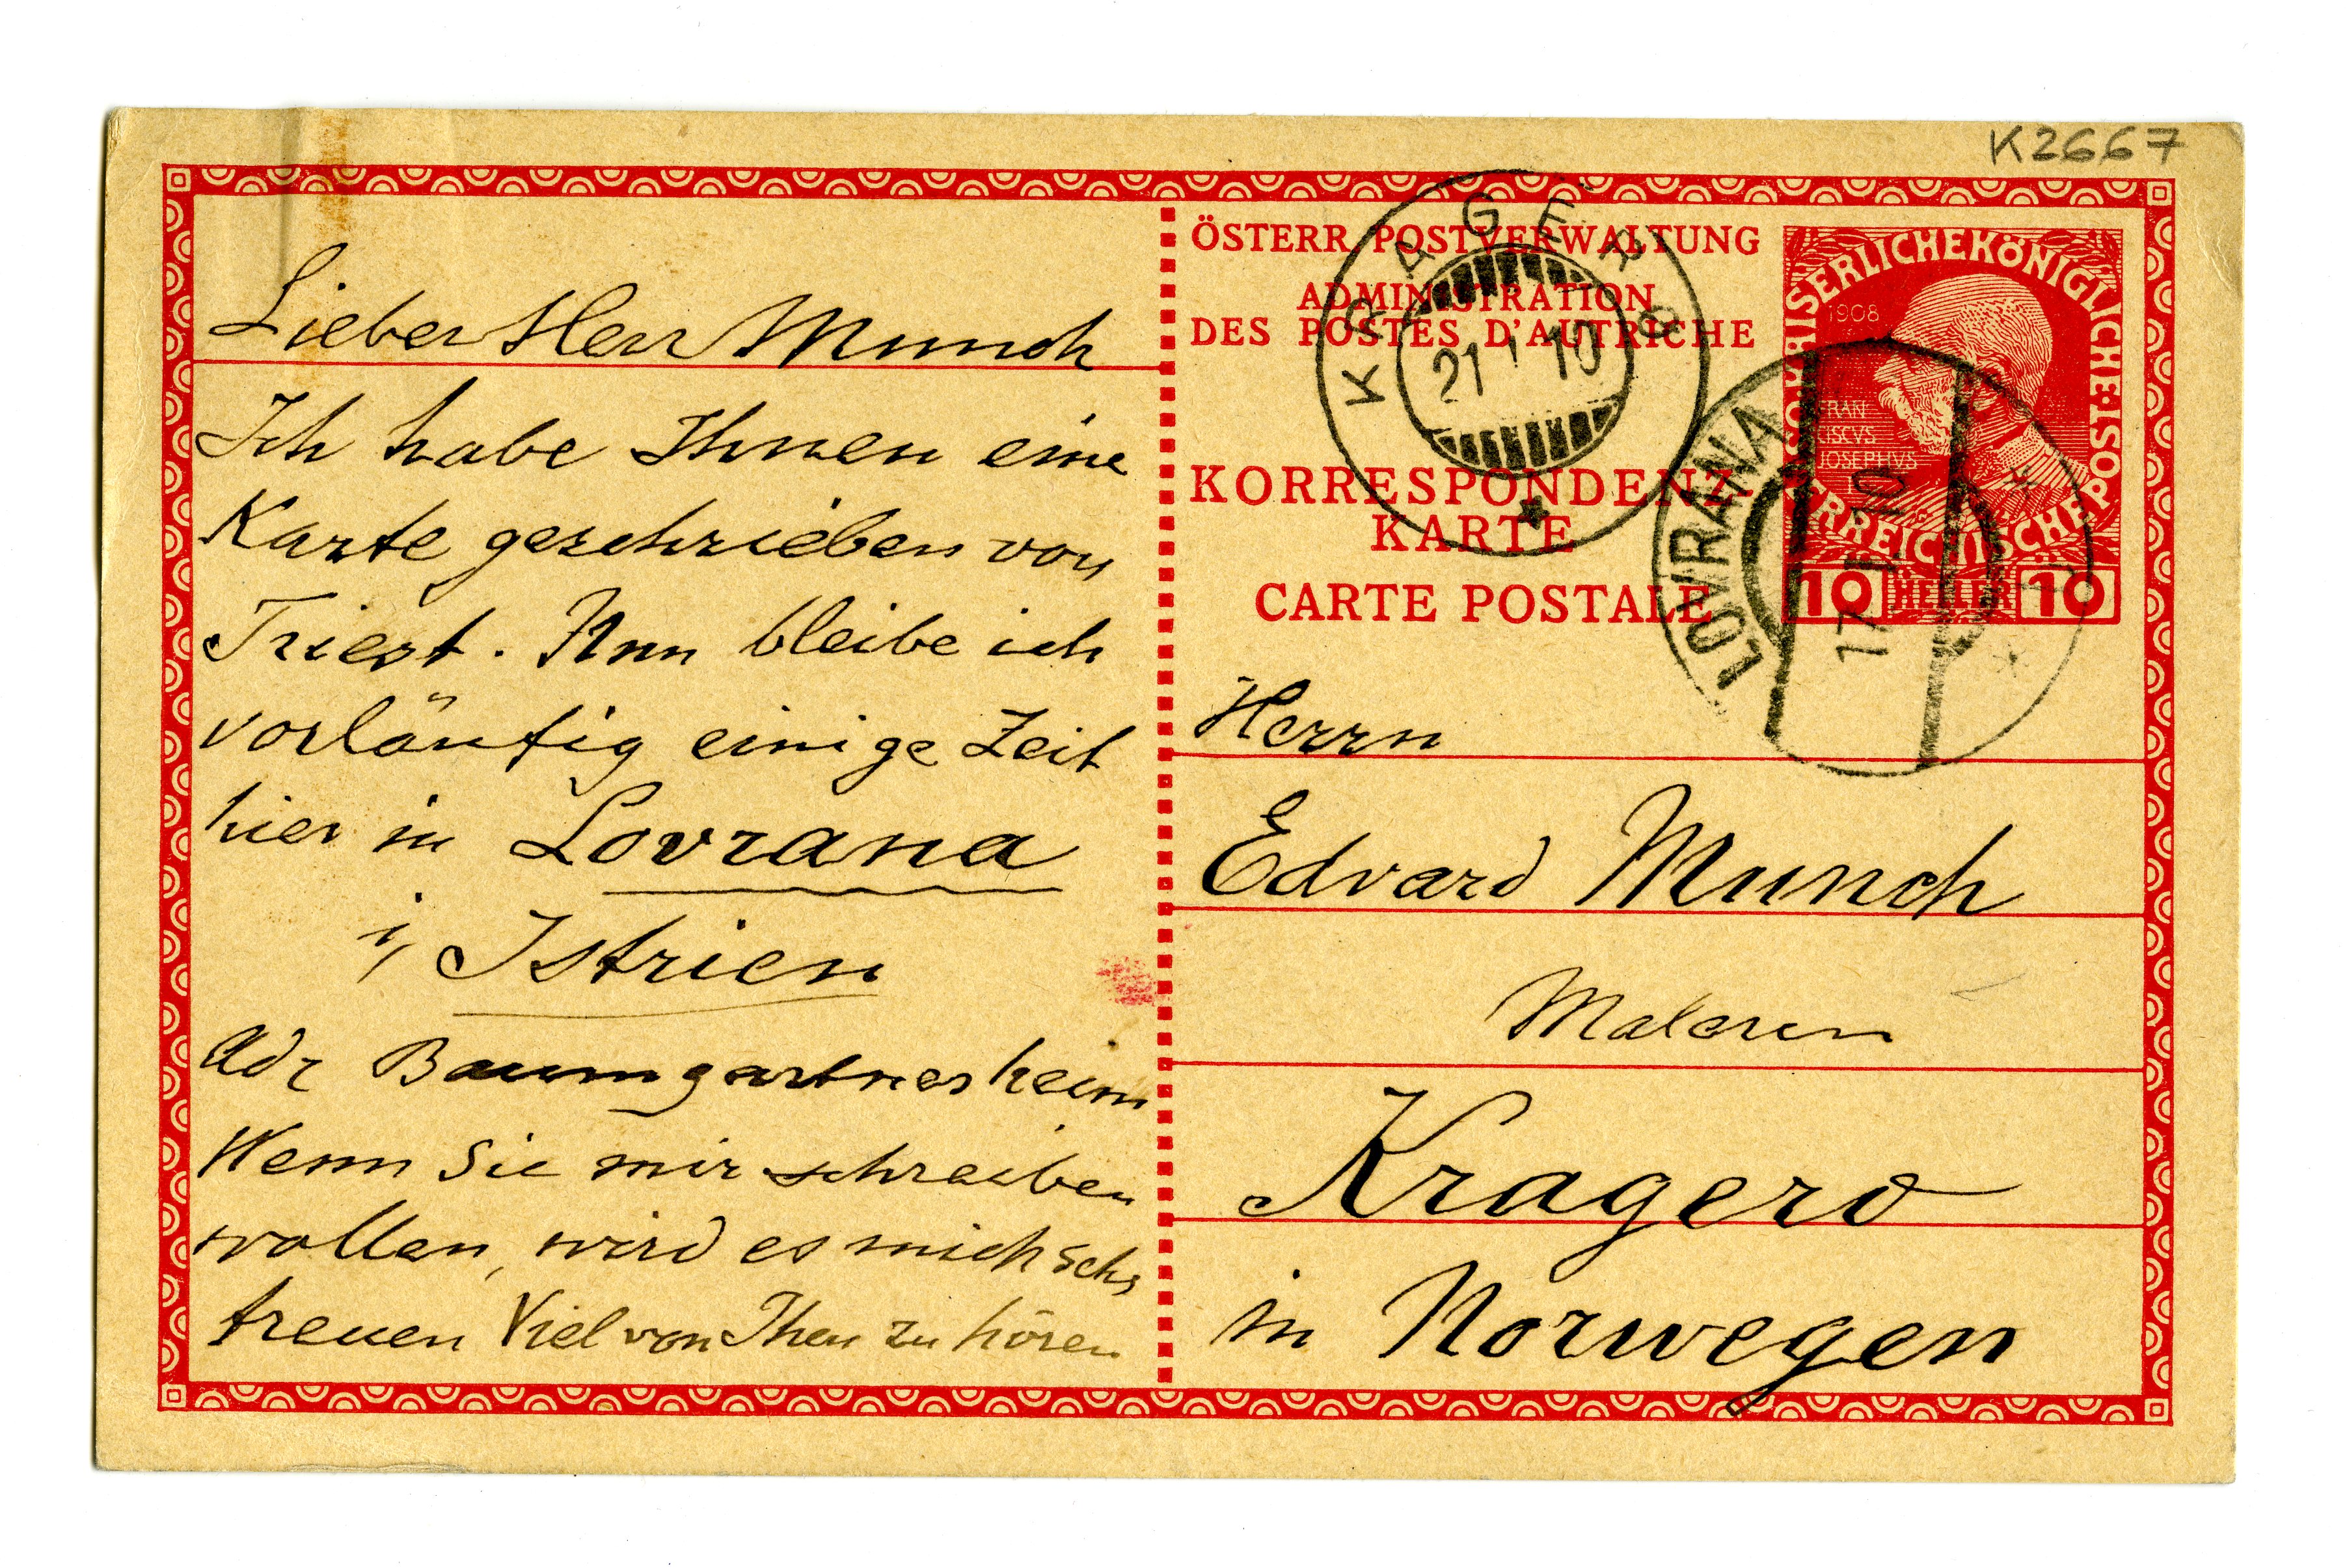 K2667
Lieber Herr Munch
Ich habe Ihnen eine
Karte geschrieben von
Triest. Nun bleibe ich
vorläufig einige Zeit
hier in Lovrana
i, Istrien
Adr Baumgartnerheim
Wenn Sie mir schreiben
wollen, wird es mich sehr
freuen Viel von Ihen zu hören
ÖSTERR. POSTVERWALTUNG
ADMINISTRATION
DES POSTES D'AUTRICHE
KORRESPONDENZ-
KARTE
CARTE POSTALE
KRAGERØ
21 I 10
KAISERLICHEKÖNIGLICHE
ÖSTERREICHISCHEPOST
1908
FRAN
CISCVS
JOSEPHVS
10 HELLER 10
LOVRANA
17 I 10
Herrn
Edvard Munch
Maleren
Kragerø
in Norwegen